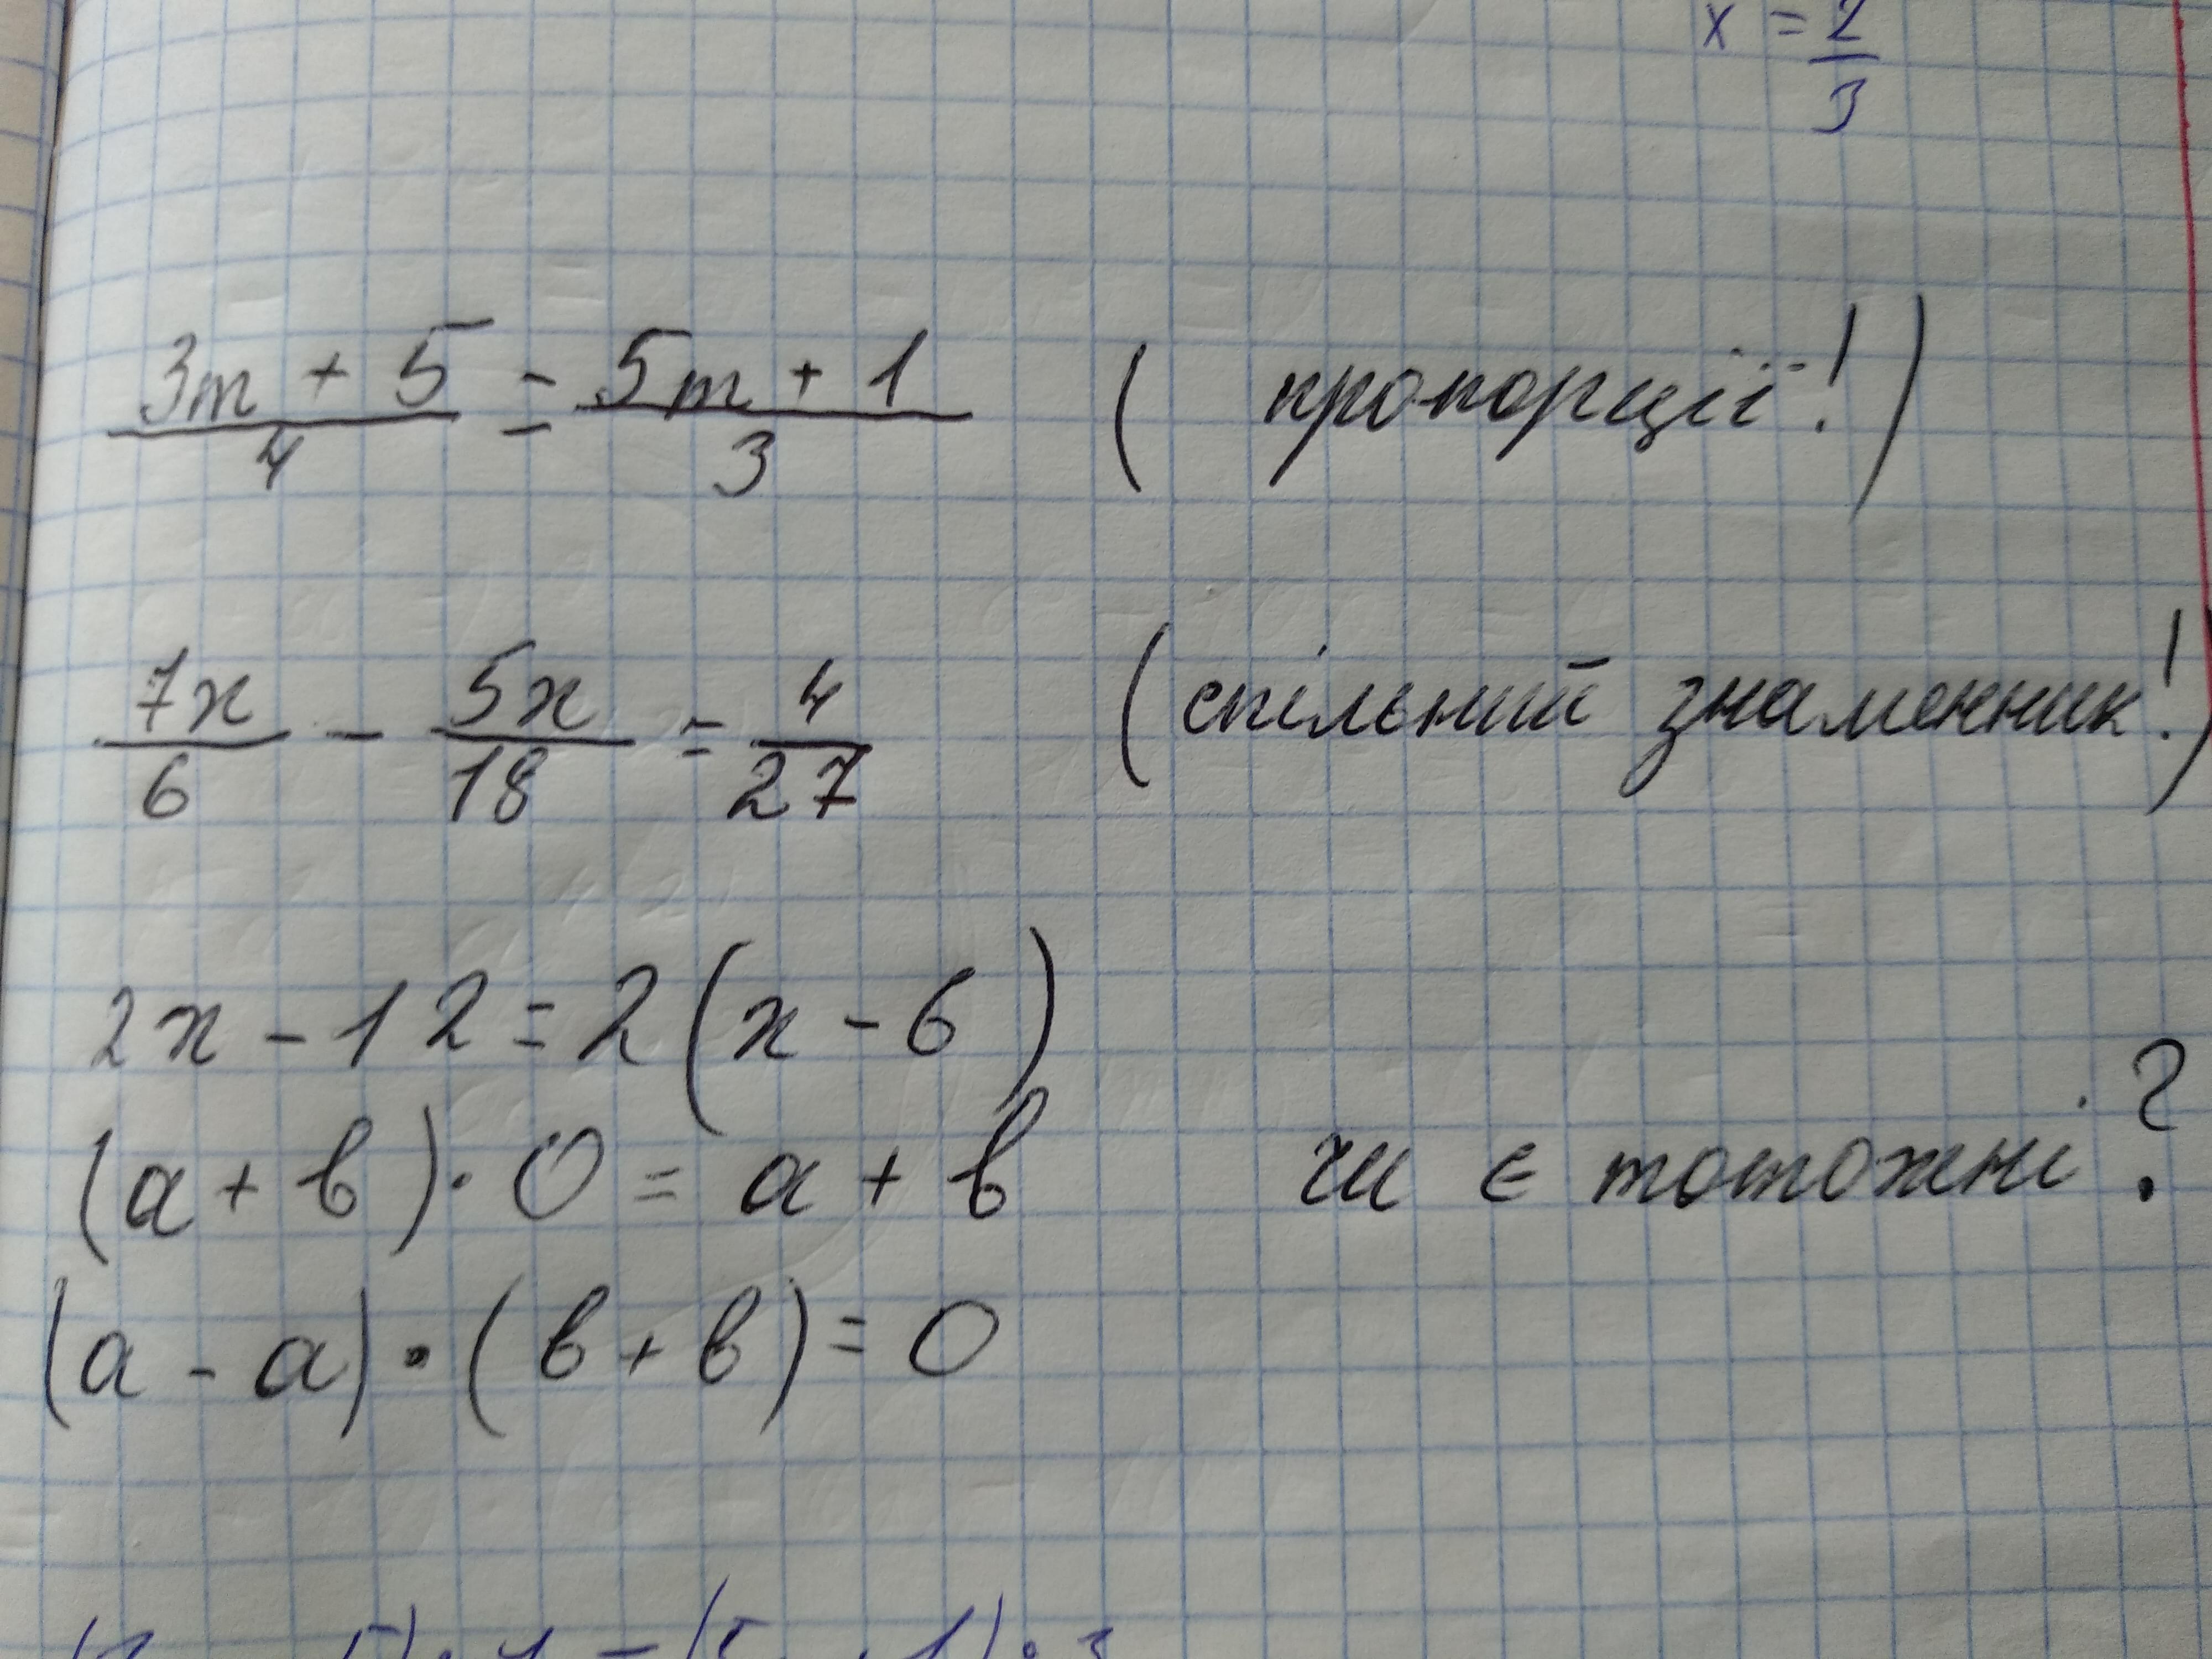 x = 2/3
(3m + 5)/4 = (5m + 1)/3 ( пропорції! )
7x/6 - 5x/18 = 4/27 (спільний знаменник!)
2x - 12 = 2(x - 6)
(a + b) · 0 = a + b чи є тотожні?
(a - a) · (b + b) = 0